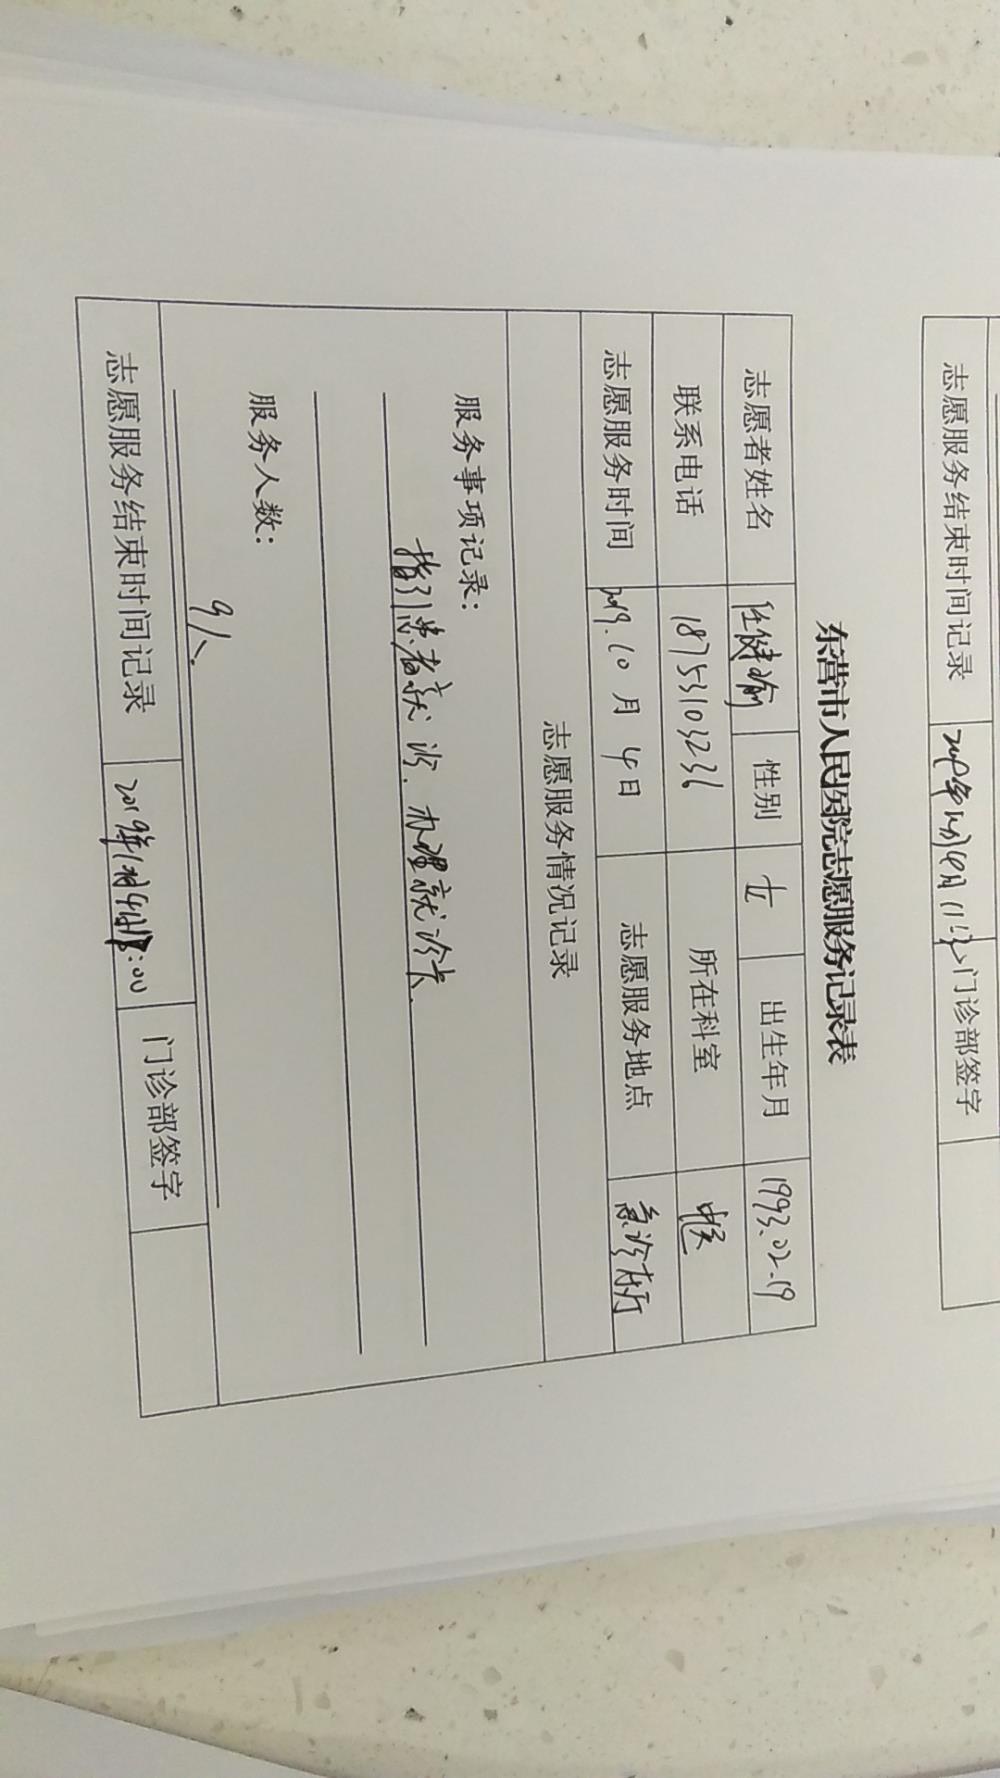 志愿服务结束时间记录 门诊部签字
东营市人民医院志愿服务记录表
志愿者姓名 任健瑜 性别 女 出生年月 1993.02.19
联系电话 18753103236 所在科室 中医
志愿服务时间 2019.10月4日 志愿服务地点 急诊大厅
志愿服务情况记录
服务事项记录：
指引患者就诊、办理就诊卡.
服务人数：
9人.
志愿服务结束时间记录 2019年10月4日 :00 门诊部签字